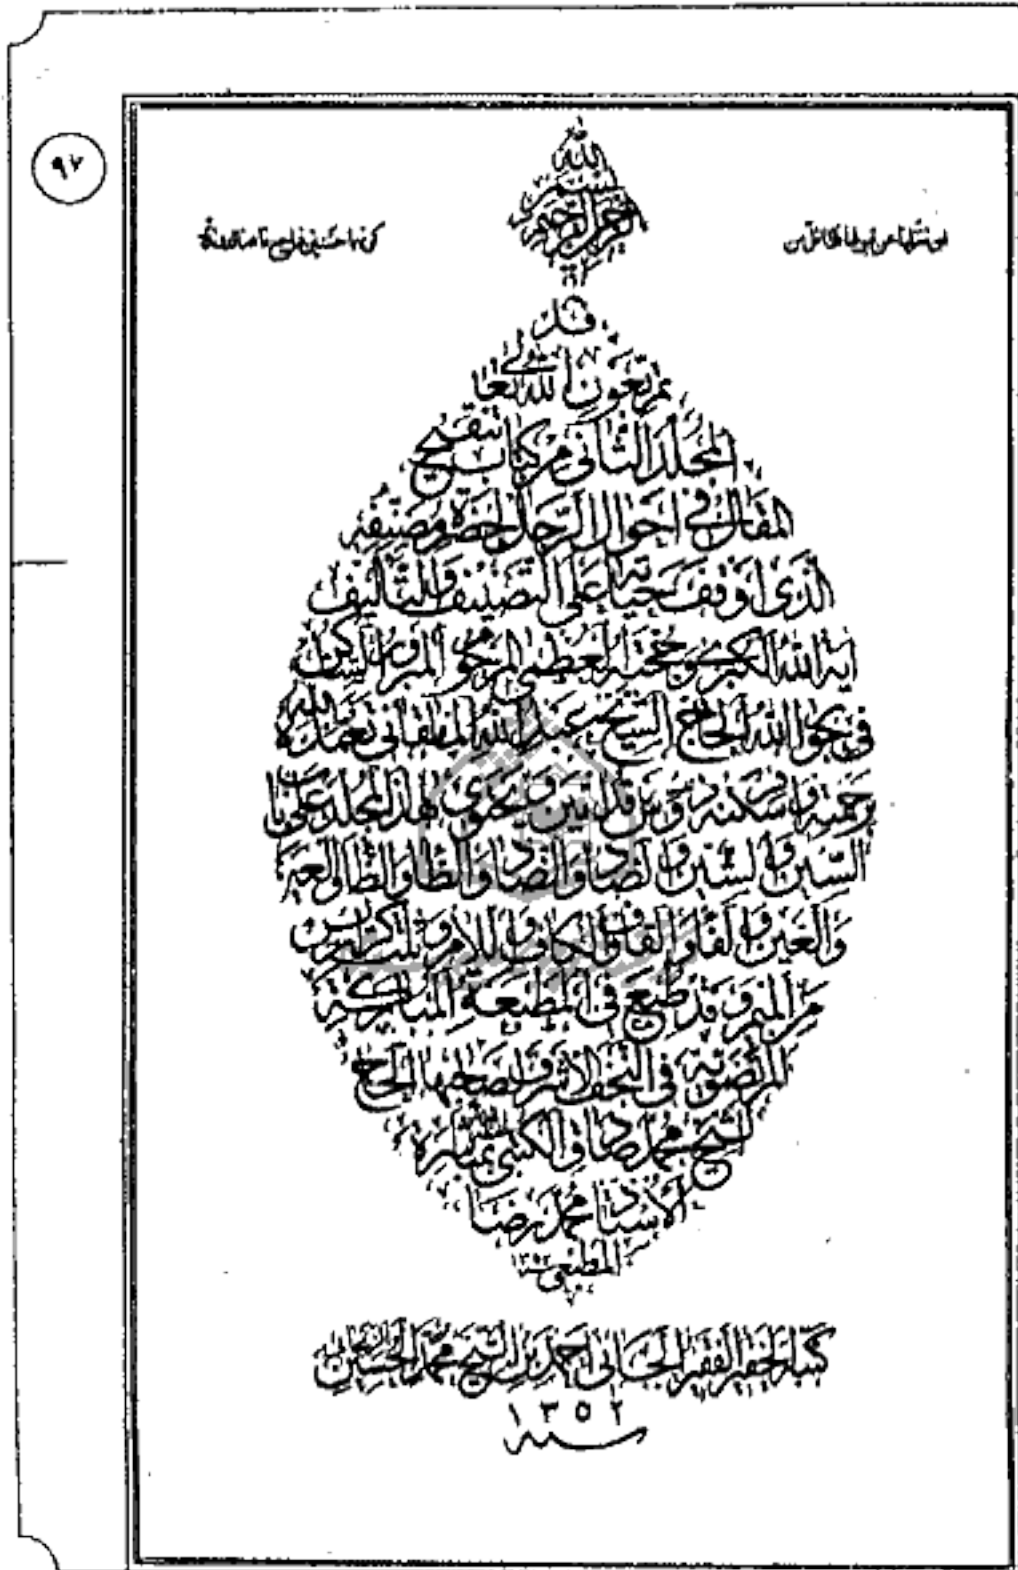 ٩٧
بسم الله
الرحمن الرحيم
قد
تم بعون الله تعالى
المجلد الثاني من كتاب تنقيح
المقال في احوال الرجال لحضرة مصنفه
الذي اوقف حياته على التصنيف والتاليف
اية الله الكبرى وحجته العظمى المرحوم المبرور الساكن
في جوار الله الحاج الشيخ عبد الله المامقاني تغمده الله
برحمته واسكنه فردوس وقد يحتوي هذا المجلد على باب
السين والشين والصاد والضاد والطاء والظاء والعين
والغين والفاء والقاف والكاف واللام وثلث كراريس
من الميم وقد طبع في المطبعة المباركة
المرتضوية في النجف الاشرف لصاحبها الحاج
الشيخ محمد صادق الكتبي بمباشرة
الاستاد محمد رضا
المطبعي سنة ١٣٥٢
كتبه الحقير الفقير الجاني احمد بن الشيخ محمد حسين
سنه ١٣٥٢